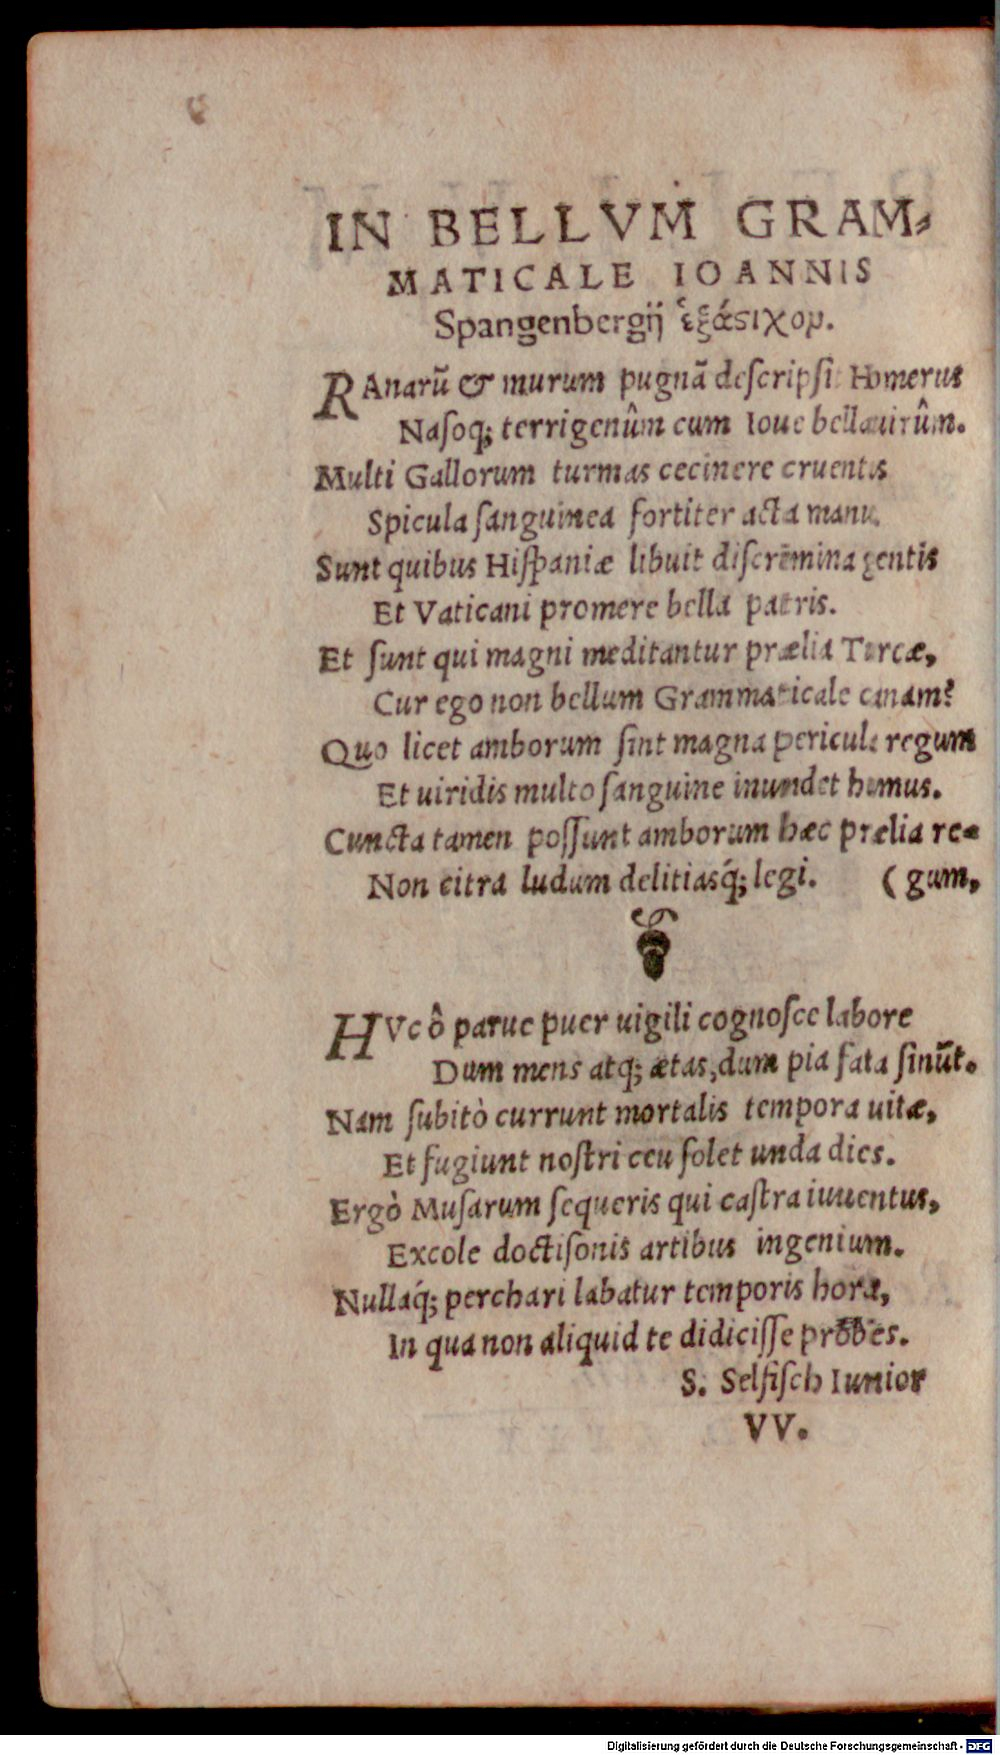 IN BELLVM GRAM⸗
MATICALE IOANNIS
Spangenbergij ἑξάϛιχον.
RAnarũ & murum pugnã descripsit Homerus
Nasoq; terrigenûm cum Ioue bella uirûm.
Multi Gallorum turmas cecinere cruentas
Spicula sanguinea fortiter acta manu.
Sunt quibus Hispaniæ libuit discrĕmina gentis
Et Vaticani promere bella patris.
Et sunt qui magni meditantur prælia Turcæ,
Cur ego non bellum Grammaticale canam?
Quo licet amborum sint magna pericula regum
Et uiridis multo sanguine inundet humus.
Cuncta tamen possunt amborum hæc prælia re⸗
Non citra ludum delitiasq́; legi. (gum,
HVc ô parue puer uigili cognosce labore
Dum mens atq; ætas, dum pia fata sinũt.
Nam subitò currunt mortalis tempora uitæ,
Et fugiunt nostri ceu solet unda dies.
Ergò Musarum sequeris qui castra iuuentus,
Excole doctisonis artibus ingenium.
Nullaq́; perchari labatur temporis hora,
In qua non aliquid te didicisse probes.
S. Selfisch Iunior
VV.
Digitalisierung gefördert durch die Deutsche Forschungsgemeinschaft - DFG